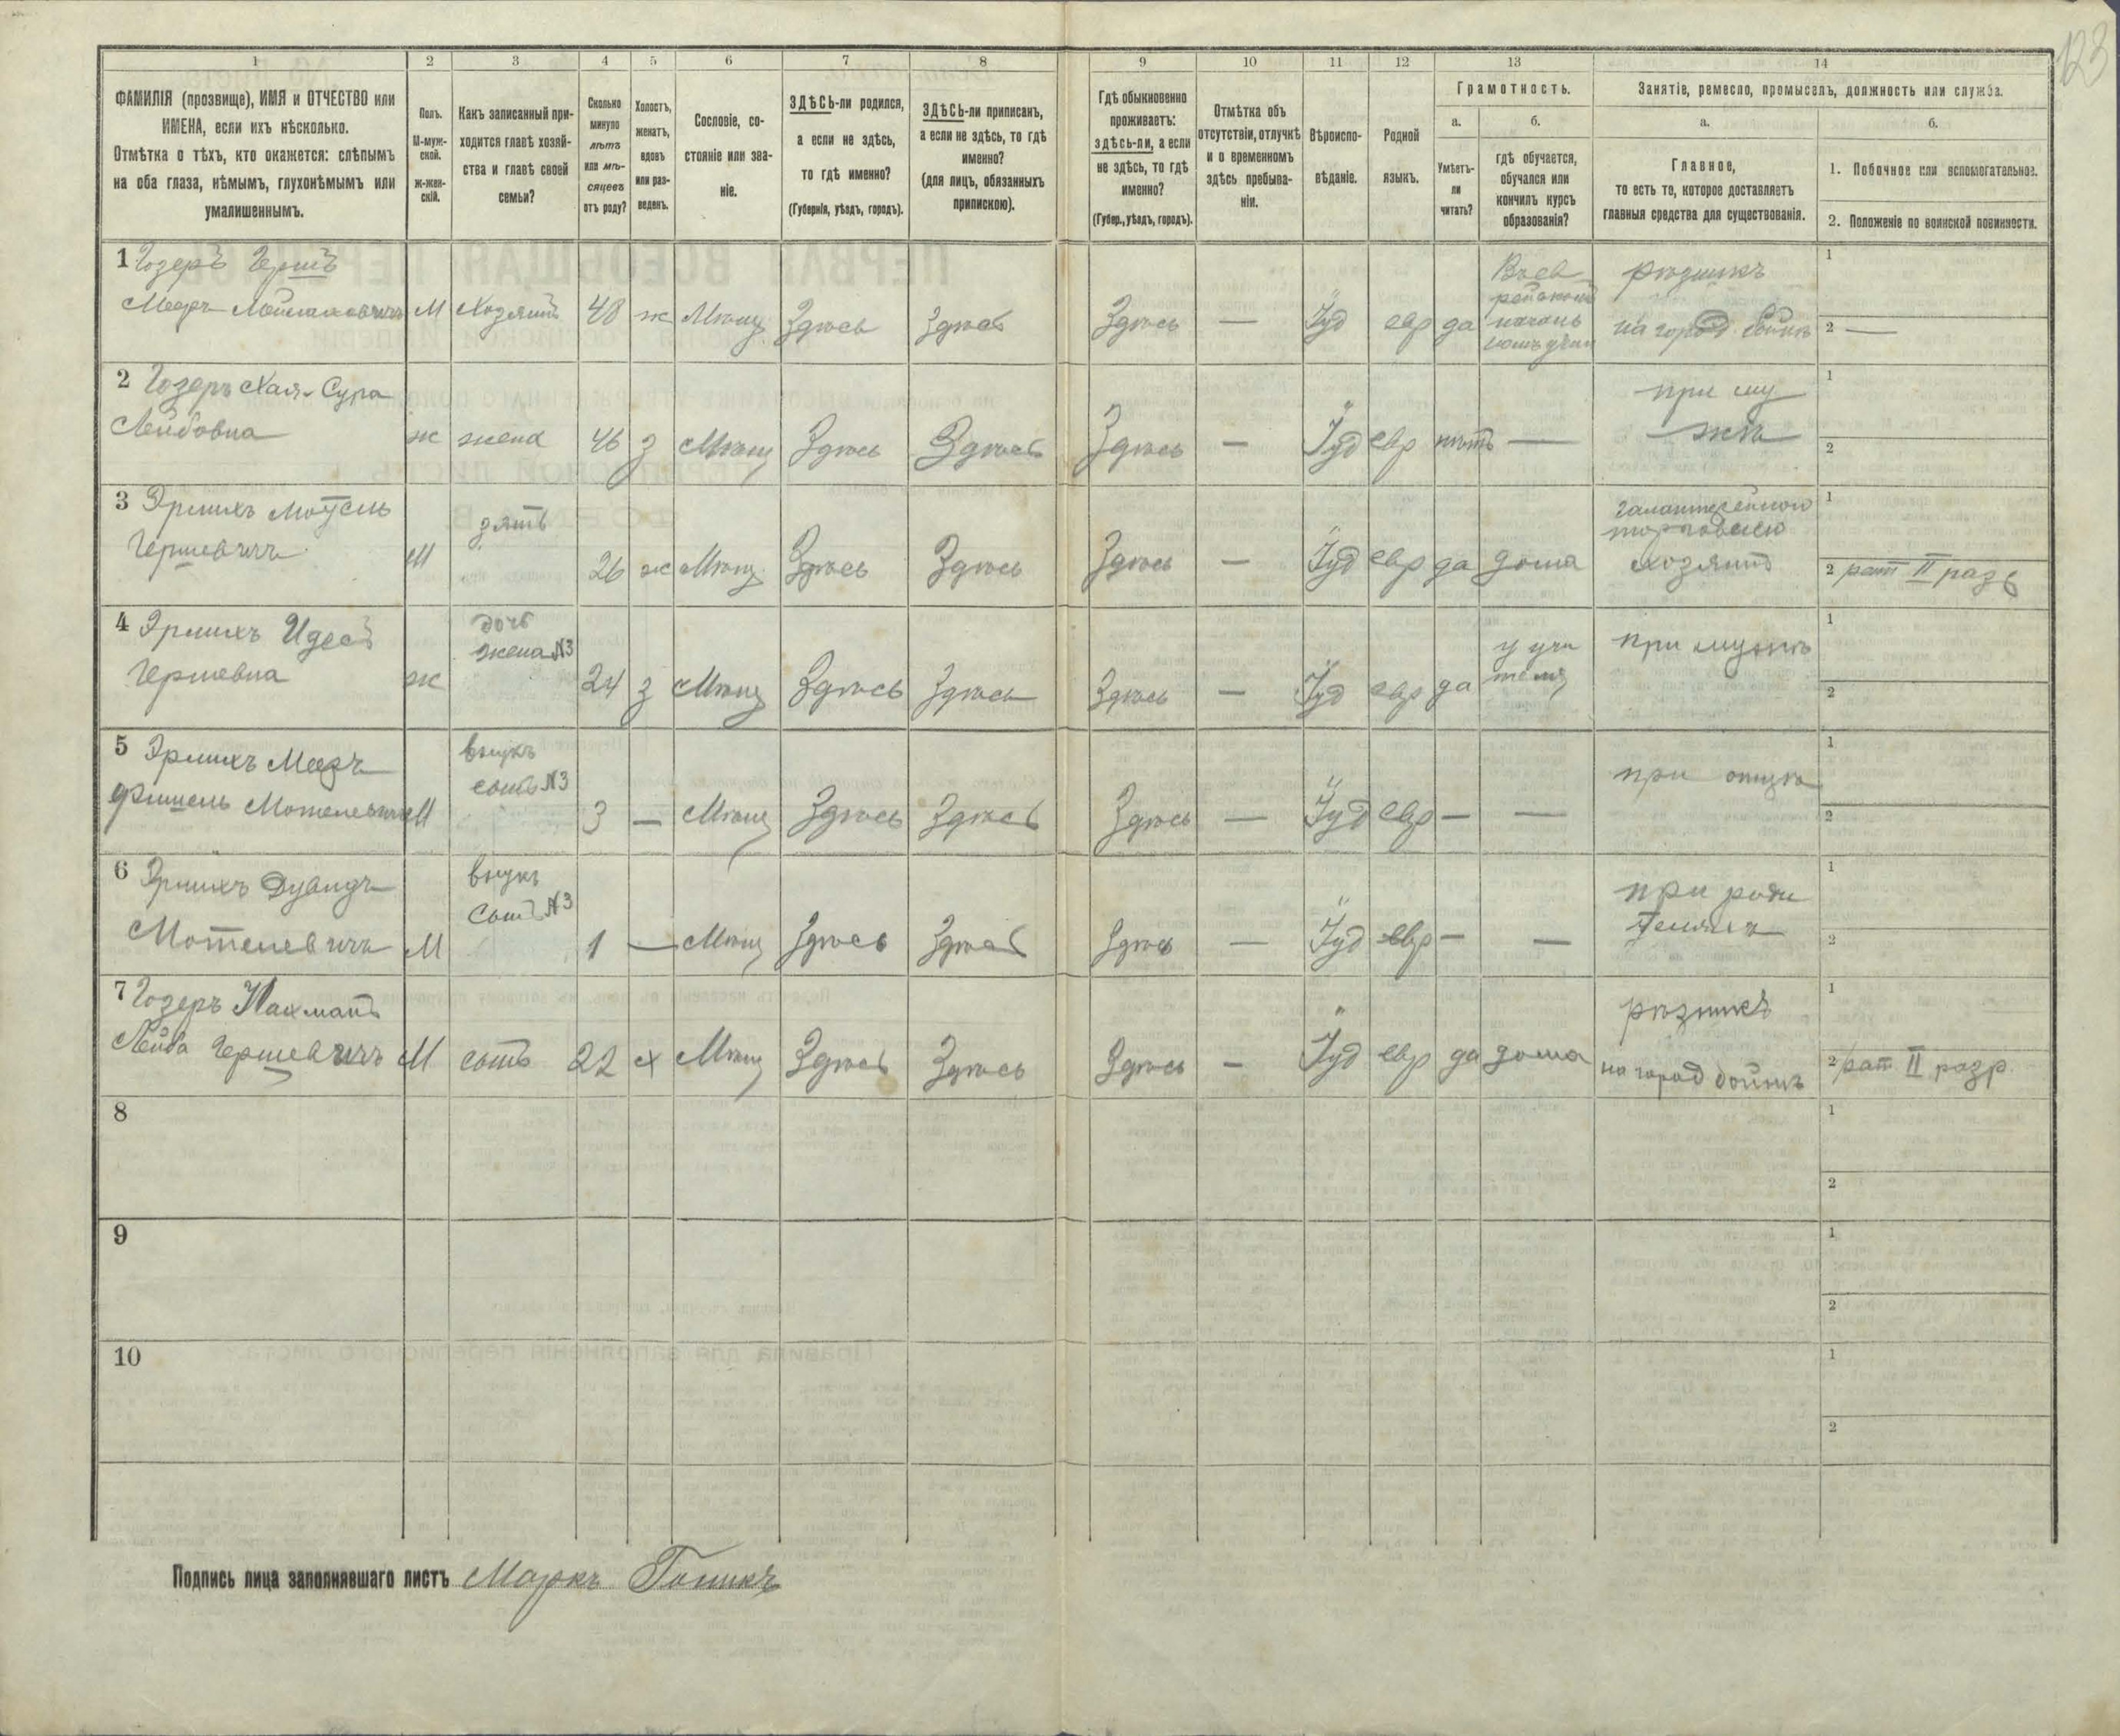 123
1 2 3 4 5 6 7 8 9 10 11 12 13 14
ФАМИЛІЯ (прозвище), ИМЯ и ОТЧЕСТВО или
ИМЕНА, если ихъ нѣсколько.
Отмѣтка о тѣхъ, кто окажется: слѣпымъ
на оба глаза, нѣмымъ, глухонѣмымъ или
умалишеннымъ.
Полъ.
М-муж-
ской.
ж-жен-
скій.
Какъ записанный при-
ходится главѣ хозяй-
ства и главѣ своей
семьи?
Сколько
минуло
лѣтъ
или мѣ-
сяцевъ
отъ роду?
Холостъ,
женатъ,
вдовъ
или раз-
веденъ.
Сословіе, со-
стояніе или зва-
ніе.
ЗДѢСЬ-ли родился,
а если не здѣсь,
то гдѣ именно?
(Губернія, уѣздъ, городъ).
ЗДѢСЬ-ли приписанъ,
а если не здѣсь, то гдѣ
именно?
(для лицъ, обязанныхъ
припискою).
Гдѣ обыкновенно
проживаетъ:
здѣсь-ли, а если
не здѣсь, то гдѣ
именно?
(Губер., уѣздъ, городъ).
Отмѣтка объ
отсутствіи, отлучкѣ
и о временномъ
здѣсь пребыва-
ніи.
Вѣроиспо-
вѣданіе.
Родной
языкъ.
Грамотность.
а.
Умѣетъ-
ли
читать?
б.
гдѣ обучается,
обучался или
кончилъ курсъ
образованія?
Занятіе, ремесло, промыселъ, должность или служба.
а.
Главное,
то есть то, которое доставляетъ
главныя средства для существованія.
б.
1. Побочное или вспомогательное.
2. Положеніе по воинской повинности.
1 Гозеръ Гершъ
Мееръ М Хозяинъ 48 ж Мѣщ Здѣсь Здѣсь Здѣсь — Іуд евр да
рѣзникъ
на город бойнѣ
1
2 —
2 Гозеръ Хая-Сура
Лейбовна ж жена 46 з Мѣщ Здѣсь Здѣсь Здѣсь — Іуд евр нѣтъ —
при му
жѣ
1
2
3 Эрлихъ Мотель
Гершевичъ М зять 26 ж Мѣщ Здѣсь Здѣсь Здѣсь — Іуд евр да дома
галантерейной
торговлею
хозяинъ
1
2 рат II разр
4 Эрлихъ Идесъ
Гершевна ж
дочь
жена №3
24 з Мѣщ Здѣсь Здѣсь Здѣсь — Іуд евр да
у учи
теля
при мужѣ
1
2
5 Эрлихъ Мееръ
Фишель Мотелевичъ М
внукъ
сынъ №3
3 — Мѣщ Здѣсь Здѣсь Здѣсь — Іуд евр — —
при отцѣ
1
2
6 Эрлихъ Дувидъ
Мотелевичъ М
внукъ
сынъ №3
1 — Мѣщ Здѣсь Здѣсь Здѣсь — Іуд евр — —
при роди
теляхъ
1
2
7 Гозеръ Нахманъ
Лейба Гершевичъ М сынъ 22 х Мѣщ Здѣсь Здѣсь Здѣсь — Іуд евр да дома
рѣзникъ
на город бойнѣ
1
2 рат II разр
8
1
2
9
1
2
10
1
2
Подпись лица заполнявшаго листъ Маркъ